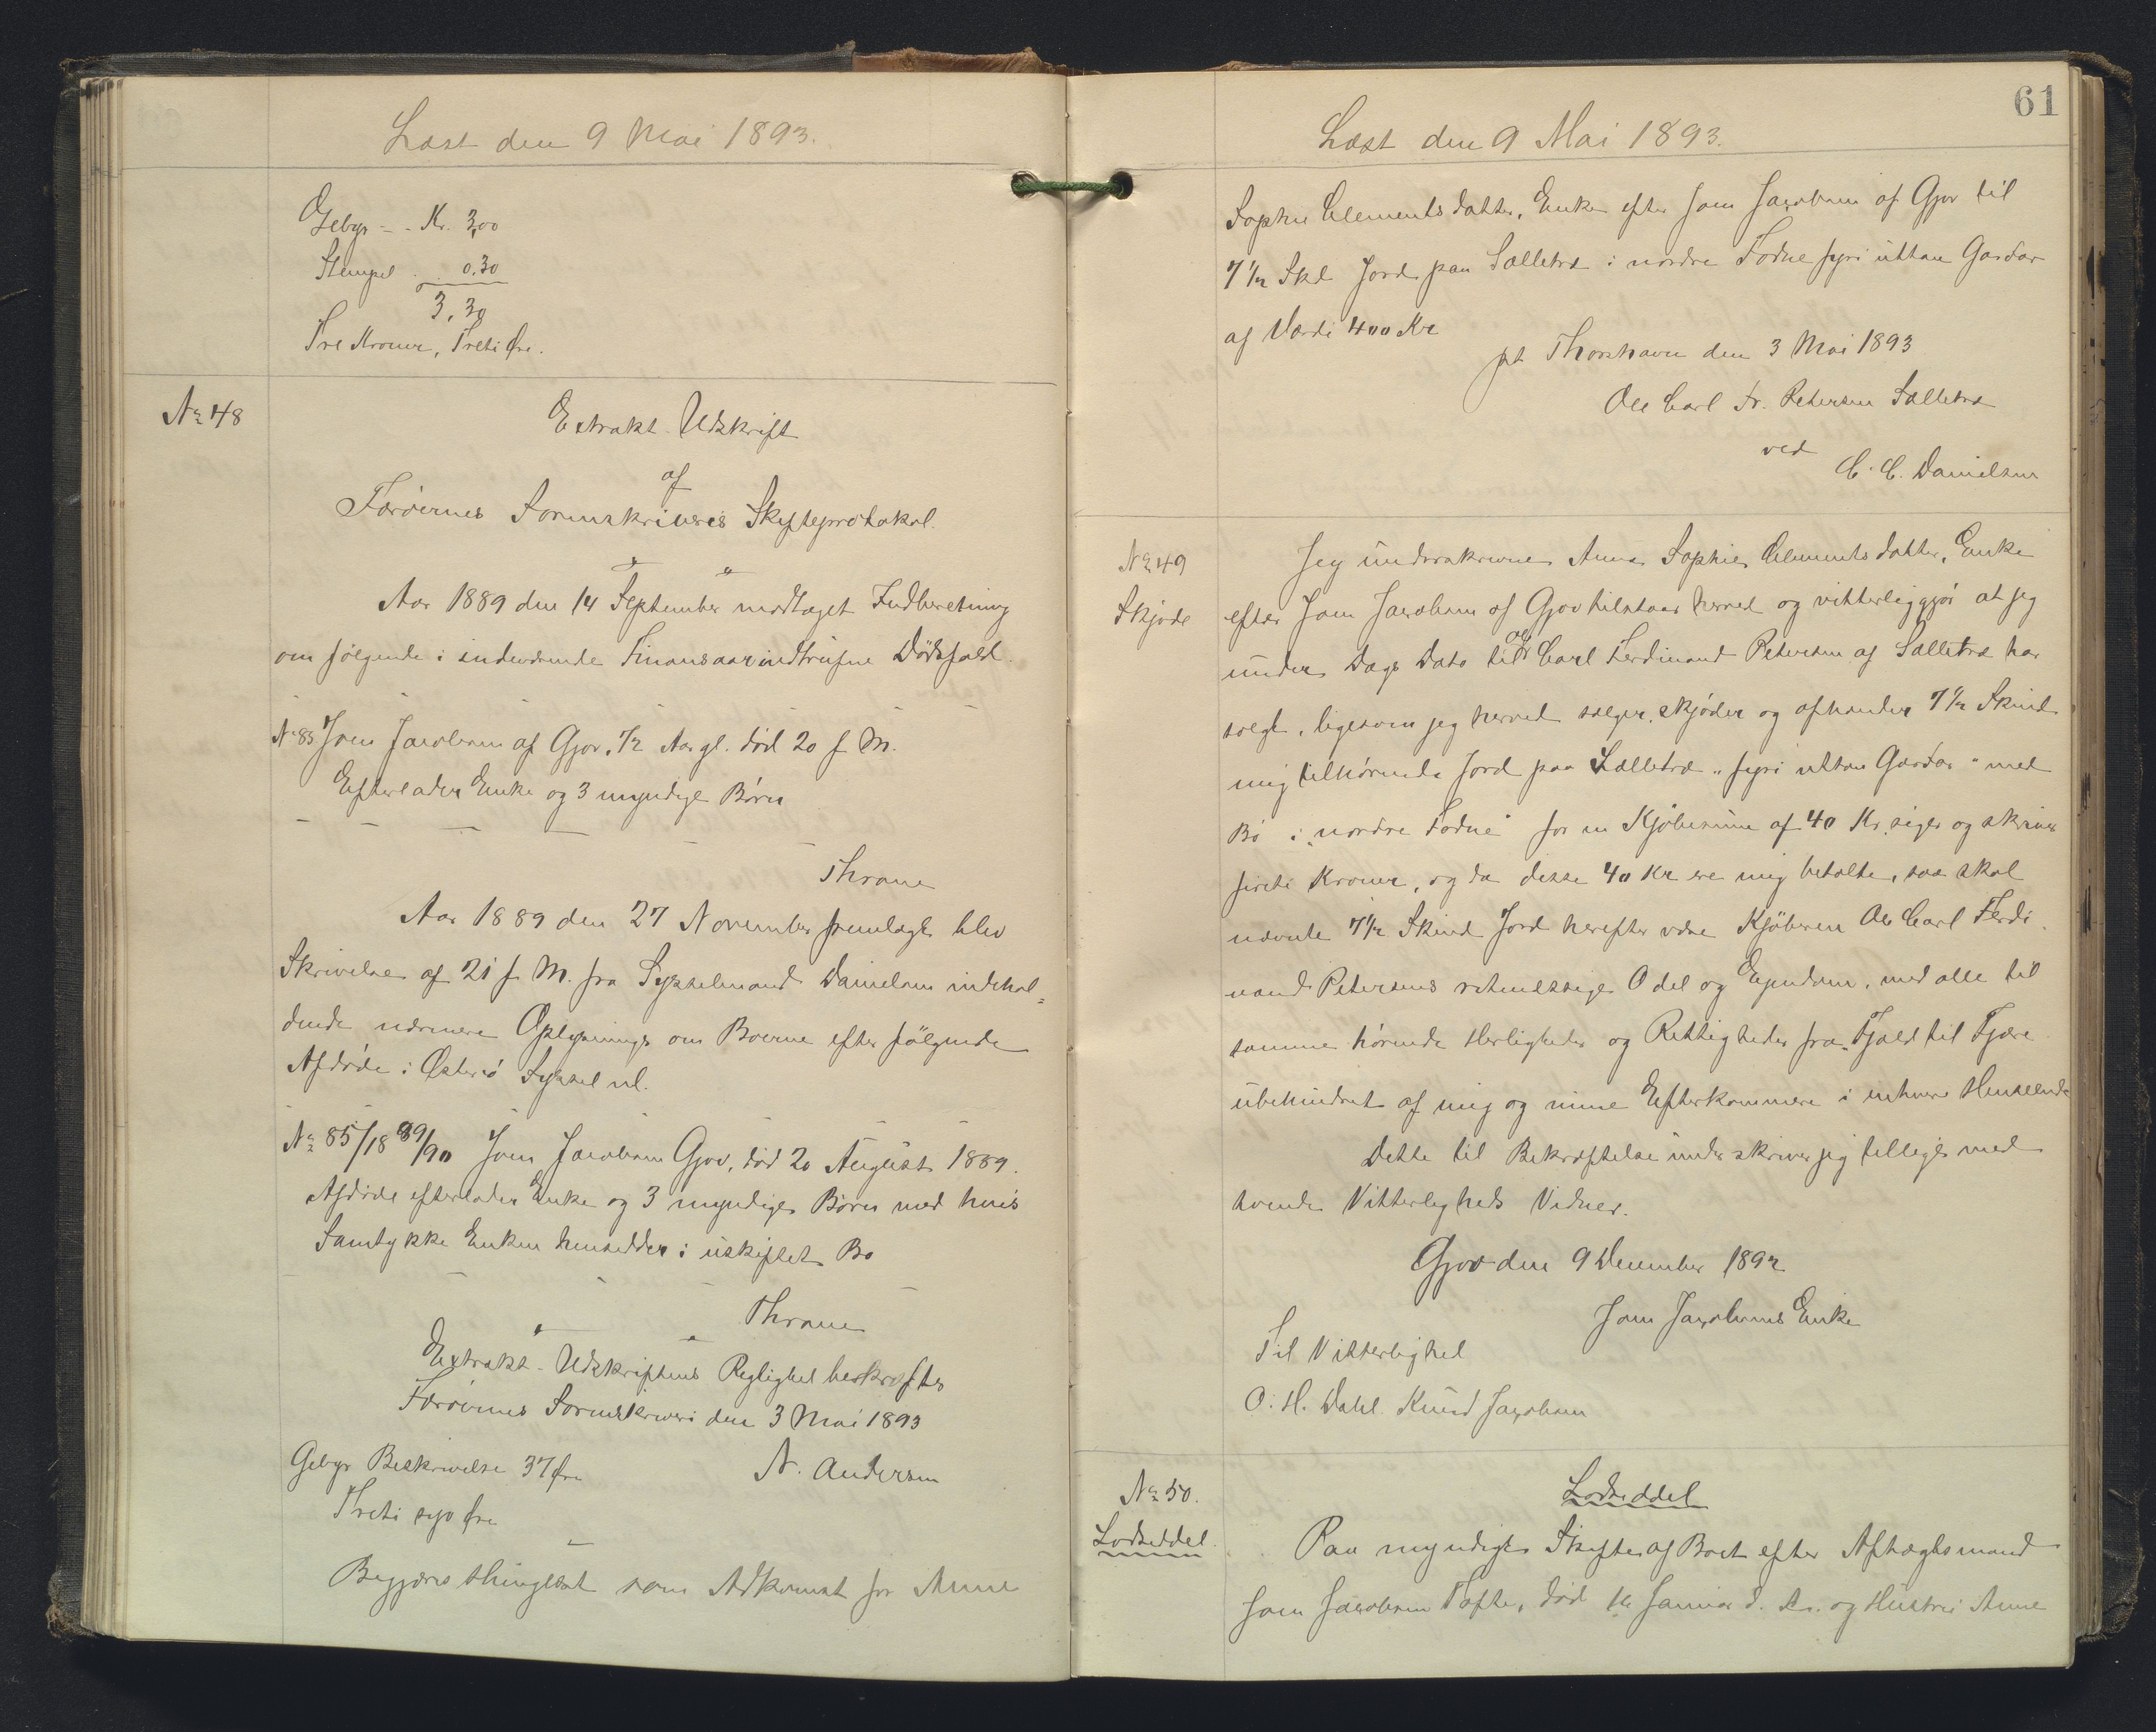 Læst den 9 Mai 1893.
Gebyr - - Kr. 3,00
Stempel . . 0.30
3,30
Tre Kroner, Treti Øre.
No 48
Extrakt-Udskrift
af
Færöernes Sorenskriveris Skifteprotokol.
Aar 1889 den 14 September modtaget Indberetning
om følgende i indeværende Finansaar indtrufne Dödsfald.
No 85 Joen Jacobsen af Gjov, 72 Aar gl. död 20 f. M.
Efterlader Enke og 3 myndige Børn
Thrane
Aar 1889 den 27 November fremlagt blev
Skrivelse af 21 f. M. fra Sysselmand Danielsen indehol=
dende nærmere Oplysninger om Boerne efter følgende
Afdøde i Österö Syssel nl.
No 85/1889/90 Joen Jacobsen Gjov, död 20 August 1889.
Afdöde efterlader Enke og 3 myndige Børn med hvis
Samtykke Enken hensidder i uskiftet Bo
Thrane
Extrakt-Udskriftens Rigtighed bekræftes
Færöernes Sorenskriveri den 3 Mai 1893
Gebyr Beskrivelse 37 Øre
N. Andersen
Treti syv Øre
Begjæres thinglæst som Adkomst for Anne
61
Læst den 9 Mai 1893.
Sophie Clementsdatter, Enke efter Joen Jacobsen af Gjov til
7 1/2 Skd Jord paa Sælletræ i nordre Fodne fyri uttan Gardar
af Værdi 400 Kr
pt Thorshavn den 3 Mai 1893
Ole Carl Fr. Petersen Sælletræ
ved
C. C. Danielsen
No 49
Skjøde
Jeg underskrevne Anna Sophie Clementsdatter, Enke
efter Joen Jacobsen af Gjov tilstaar herved og vitterliggjör at jeg
under Dags Dato til Ole Carl Ferdinand Petersen af Sælletræ har
solgt, ligesom jeg herved sælger, skjøder og afhænder 7 1/2 Skind
mig tilhørende Jord paa Sælletræ "fyri uttan Gardar" med
Bö i "nordre Fodne" for en Kjöbesum af 40 Kr. siger og skriver
fireti Kroner, og da disse 40 Kr ere mig betalte, saa skal
nævnte 7 1/2 Skind Jord herefter være Kjøberen Ole Carl Ferdi
nand Petersens retmæssige Odel og Ejendom, med alle til
samme hørende Herligheder og Rettigheder fra Fjæld til Fjære
ubehindret af mig og mine Efterkommere i enhver Henseende
Dette til Bekræftelse underskriver jeg tillige med
tvende Vitterligheds Vidner.
Gjov den 9 December 1892
Joen Jacobsens Enke
Til Vitterlighed
O. H. Dahl. Knud Jacobsen
No 50.
Lodseddel.
Lodseddel
Paa myndige Skifte af Boet efter Aftægtsmand
Joen Jacobsen Tofte, död Januar d. A. og Hustru Anne